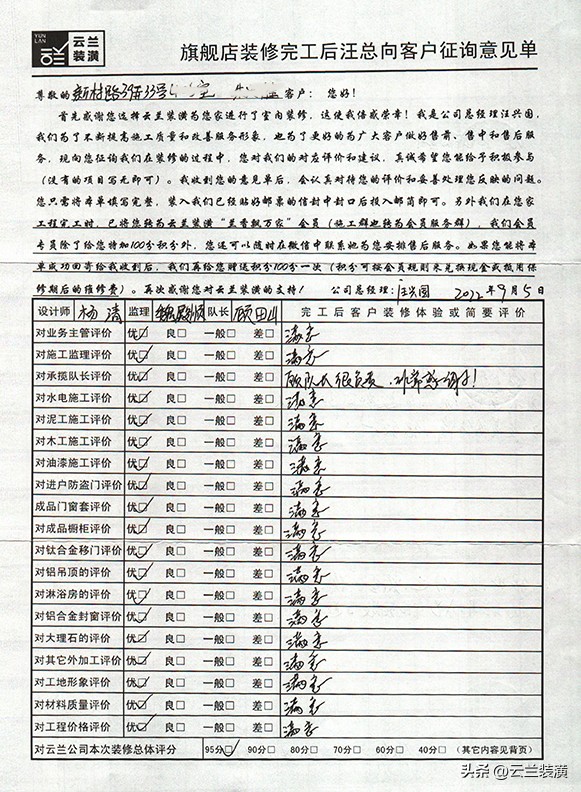 YUN LAN
云兰
装潢
旗舰店装修完工后汪总向客户征询意见单
尊敬的新村路 客户：您好！
首先感谢您选择云兰装潢为您家进行了室内装修，这使我倍感荣幸！我是公司总经理汪兴国，
我们为了不断提高施工质量和改善服务形象，也为了更好的为广大客户做好售前、售中和售后服
务，现向您征询我们在装修的过程中，您对我们的对应评价和建议，真诚希望您能给予积极参与
（没有的项目写无即可）。我收到您的意见单后，会认真对待您的评价和妥善处理您反映的问题。
您只需将本单填写完整，装入我们已经贴好邮票的信封中封口后投入邮筒即可。另外我们在您家
工程完工时，已将您转为云兰装潢“兰香飘万家”会员（施工群也转为会员服务群），我们会员
专员除了给您增加100分积分外，您还可以随时在微信中联系她为您安排售后服务。如果您能将本
单成功回寄给我收到后，我们再给您赠送积分100分一次（积分可按会员规则来兑换现金或抵用保
修期后的维修费）。再次感谢您对云兰装潢的支持！ 公司总经理：汪兴国 2022年9月5日
设计师 杨涛 监理 队长 顾 完工后客户装修体验或简要评价
对业务主管评价 优☑ 良□ 一般□ 差□ 满意
对施工监理评价 优☑ 良□ 一般□ 差□ 满意
对承揽队长评价 优☑ 良□ 一般□ 差□ 顾队长很负责，非常感谢！
对水电施工评价 优☑ 良□ 一般□ 差□ 满意
对泥工施工评价 优☑ 良□ 一般□ 差□ 满意
对木工施工评价 优☑ 良□ 一般□ 差□ 满意
对油漆施工评价 优☑ 良□ 一般□ 差□ 满意
对进户防盗门评价 优☑ 良□ 一般□ 差□ 满意
成品门窗套评价 优☑ 良□ 一般□ 差□ 满意
对成品橱柜评价 优☑ 良□ 一般□ 差□ 满意
对钛合金移门评价 优☑ 良□ 一般□ 差□ 满意
对铝吊顶的评价 优☑ 良□ 一般□ 差□ 满意
对淋浴房的评价 优☑ 良□ 一般□ 差□ 满意
对铝合金封窗评价 优☑ 良□ 一般□ 差□ 满意
对大理石的评价 优☑ 良□ 一般□ 差□ 满意
对其它外加工评价 优☑ 良□ 一般□ 差□ 满意
对工地形象评价 优☑ 良□ 一般□ 差□ 满意
对材料质量评价 优☑ 良□ 一般□ 差□ 满意
对工程价格评价 优☑ 良□ 一般□ 差□ 满意
对云兰公司本次装修总体评分 95分☑ 90分□ 80分□ 70分□ 60分□ 40分□ （其它内容见背页）
头条 @云兰装潢